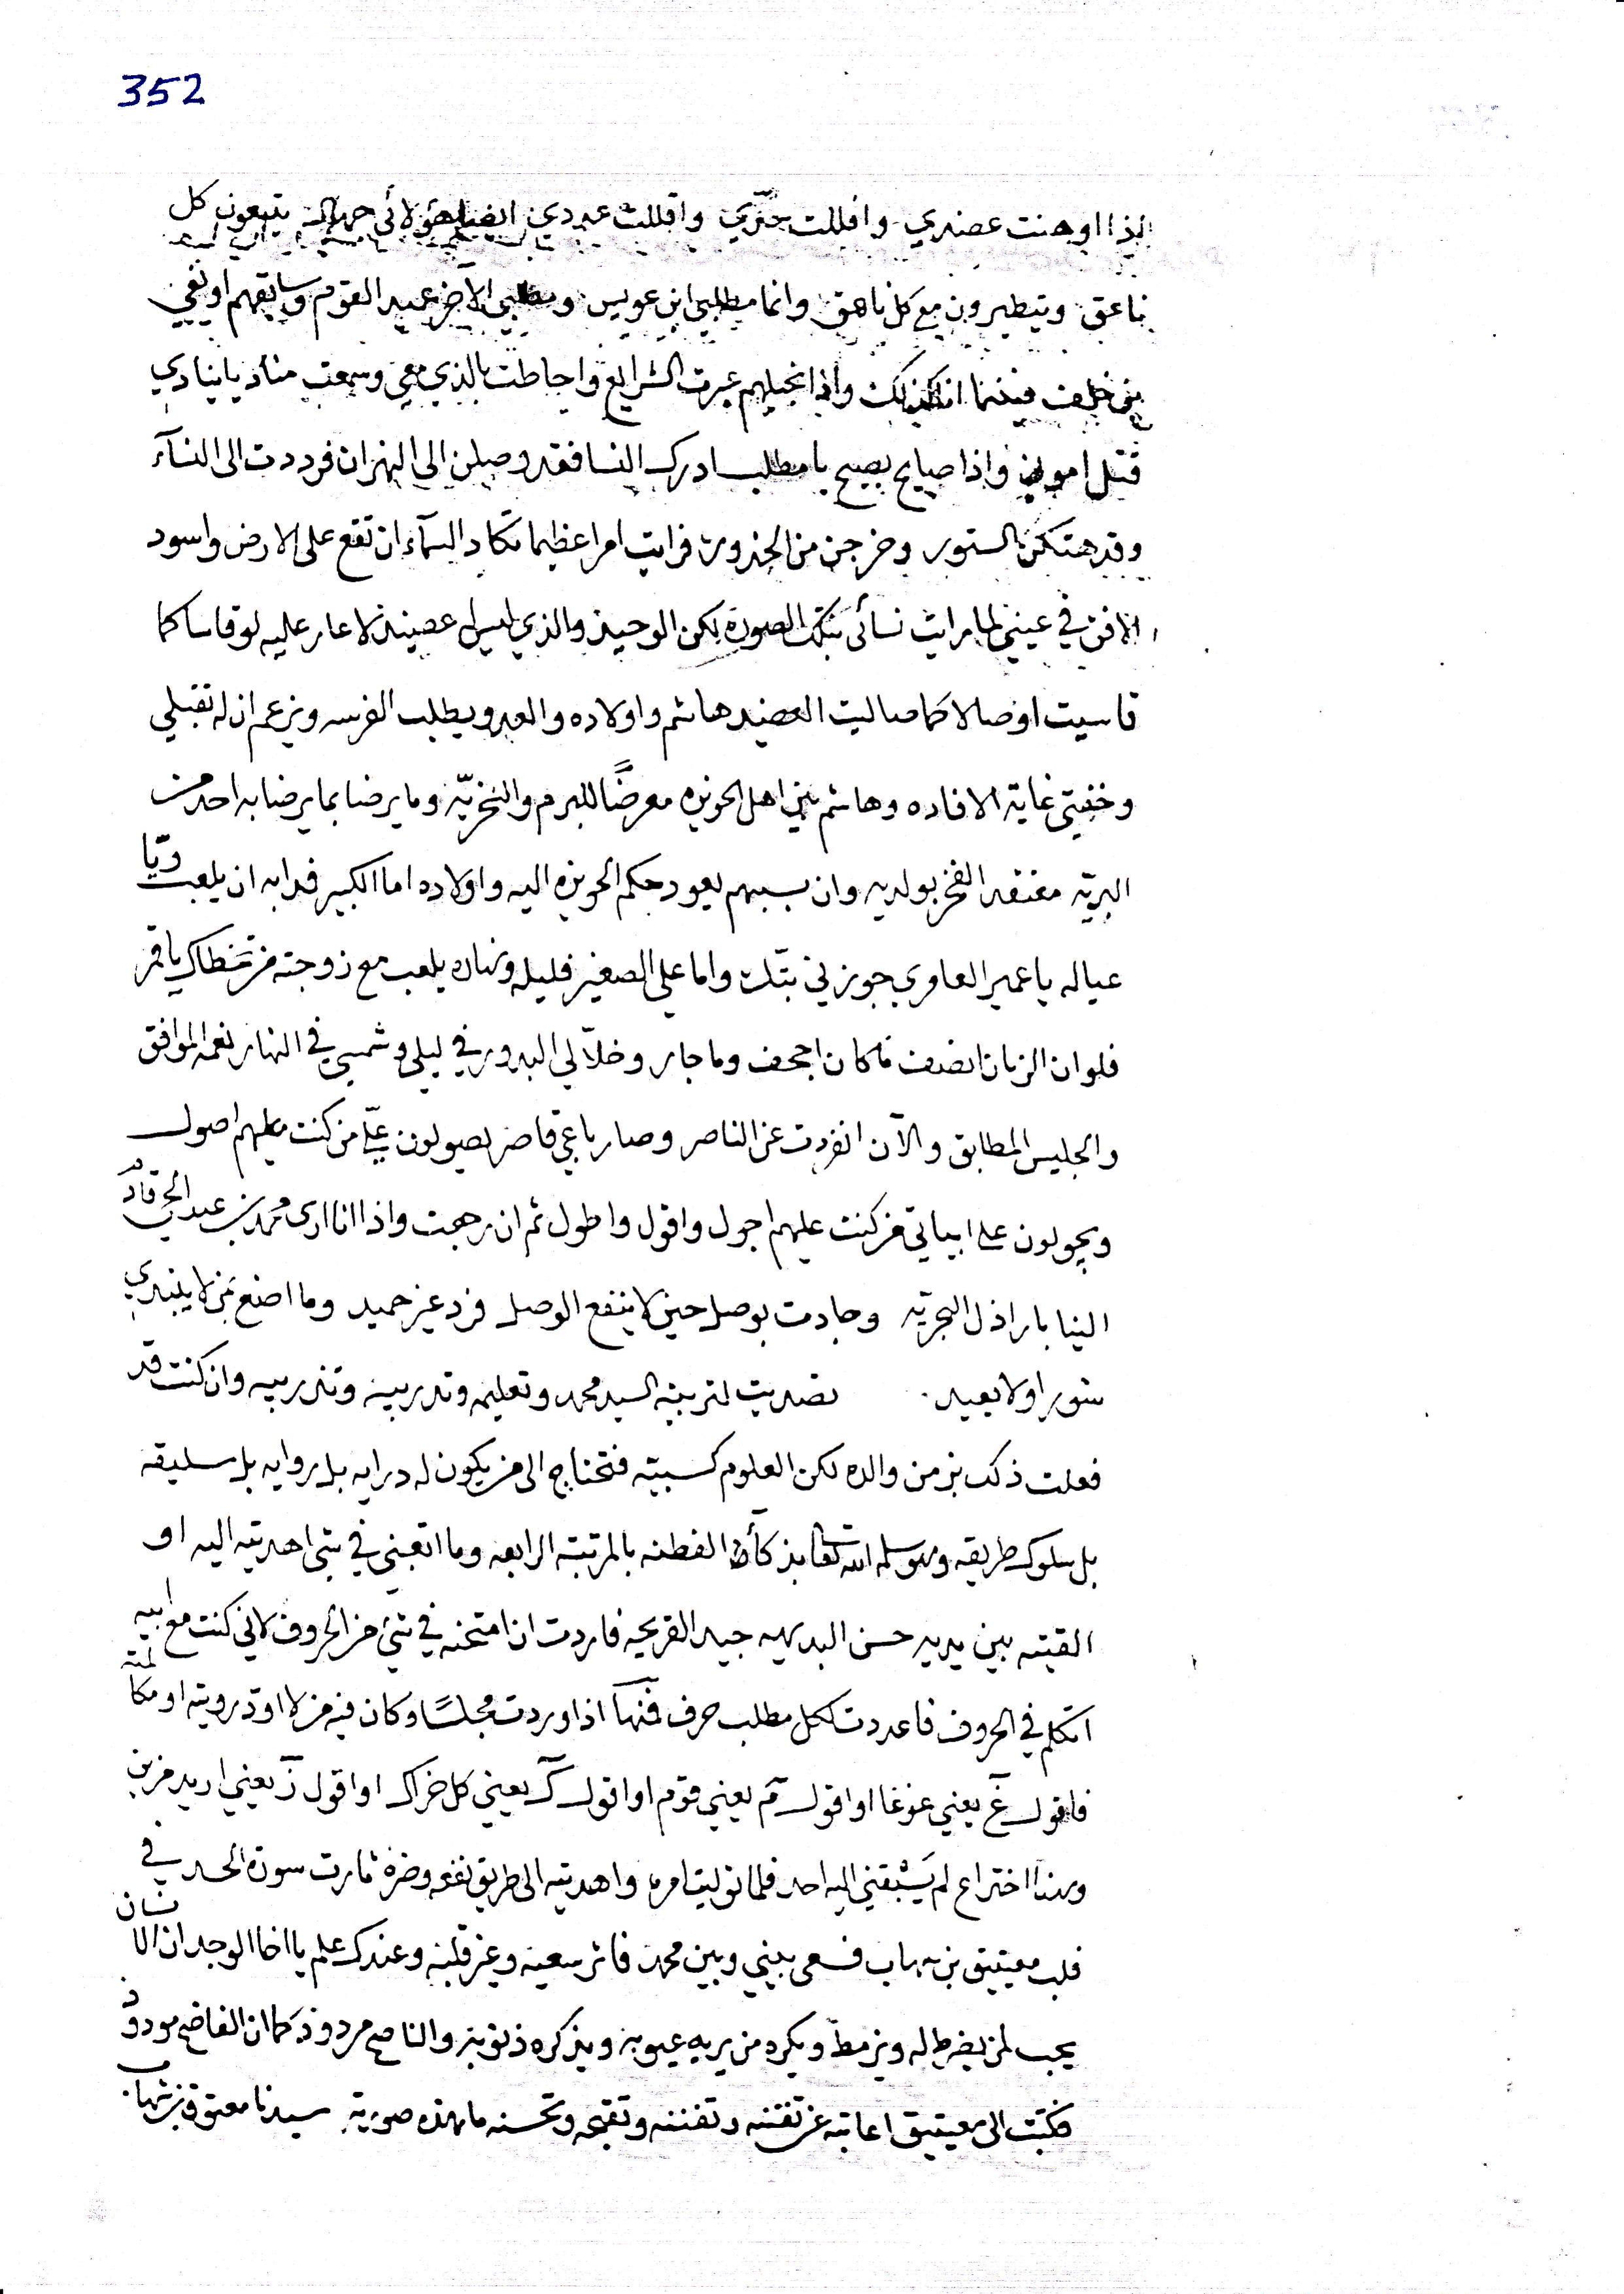 352
لذا اوهنت عضدي وافللت حدّي واقللت عددي ايضا هؤلائي جهال يتبعون كل
ناعق ويتطيرون مع كل ناهق وانما مطلبي ابن عويس ومطلبي الآخر عبيد القوم وسايقهم او نفي
بني خلف فبينما انا كذلك واذا بخيلهم عبرت الشرايع واحاطت بالذي معي وسمعت مناديا ينادي
قتل واذا صايح يصيح يا مطلب ادرك النسا فقد وصلن الى النهران فرددت الى النسآء
وقد هتكن الستور وخرجن من الخدور فرايت امرا عظيما تكاد السمآء ان تقع على الارض واسود
الافق في عيني لما رايت نسائى بتلك الصورة لكن الوحيد والذي ليس له عضيد لا عار عليه لو قاسا كما
قاسيت او صالا كما صاليت العضيد هاشم واولاده والعدو يطلب الفرسه ويزعم ان له تقبلي
وخفيتي غاية الافاده وهاشم بين اهل الحويزه معرضًا للبرم والنخريّه وما يرضا بما يرضا به احد من
البريّه معتقد الفخر بولديه وان بسببهم يعود حكم الحويزه اليه واولاده اما الكبير فدابه ان يلعب ويّا
عياله يا عمير العاوري جوزني بتك واما علي الصغير فليله ونهاره يلعب مع زوجته من تخطاك يا قمر
فلو ان الزمان انصف ما كان اجحف وما جار وخلاّ لي البدور في ليلي وشمسي في النهار نعم الموافق
والجليس المطابق والآن انفردت عن الناصر وصار باعي قاصر يصولون عليّ من كنت عليهم اصول
ويجولون على ابياتي من كنت عليهم اجول واقول واطول ثم ان رجعت واذا انا ارى محمد بن عبد الحي قادم
الينا باراذل البحريّه وجادت بوصل حين لا ينفع الوصل فرد غير حميد وما اصنع بمن لا يبدي
شورا ولا يعيد . تصديت لتربية السيد محمد وتعليمه وتدريبه وتدريسه وان كنت قد
فعلت ذلك بزمن والده لكن العلوم كسبيّه فتحتاج الى من يكون له درايه بل روايه بل سليقه
بل سلوك طريقه وهو سلمه الله تعا بذكآء الفطنه بالمرتبة الرابعه وما اتعبني في شي اهديته اليه او
القيته بين يديه حسن البديهه جيد القريحه فاردت ان امتحنه في شئ من الحروف لاني كنت مع ابيه
اتكلم في الحروف فاعددت لكل مطلب حرف فمنها اذا وردت مجلسًا وكان فيه من لا اودّ رويته او مكالمته
فاقول غ يعني غوغا او اقول م يعني قوم او اقول ك يعني كل خراك او اقول ز يعني اريد من
وهذا اختراع لم يَسْبقني اليه احد فلما توليت امره واهديته الى طريق نفعه وضره ثارت سورة الحسد في
قلب معيتيق بن شهاب فسعى بيني وبين محمد فاثر سعيه وغير قلبه وعندك علم يا اخا الوجد ان الانسان
يحب لمن يضرط له ويزمط ويكره من يريه عيوبه ويذكره ذنوبه والناصح مردود كما ان الفاضح مودود
فكتبت الى معيتيق اعاتبه عن تفتنه وتفننه وتقبحه وتحسنه ما هذه صورته سيدنا معتوق بن شهاب